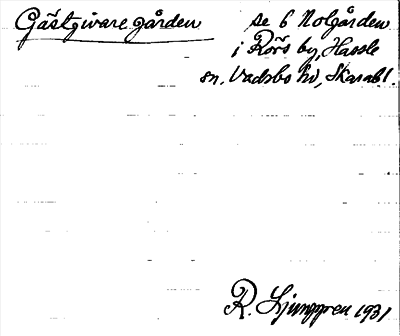 Gästgivaregården
se 6 Nolgården
i Rörs by, Hassle
sn. Vadsbo hd, Skarabl.
R. Ljunggren 1931